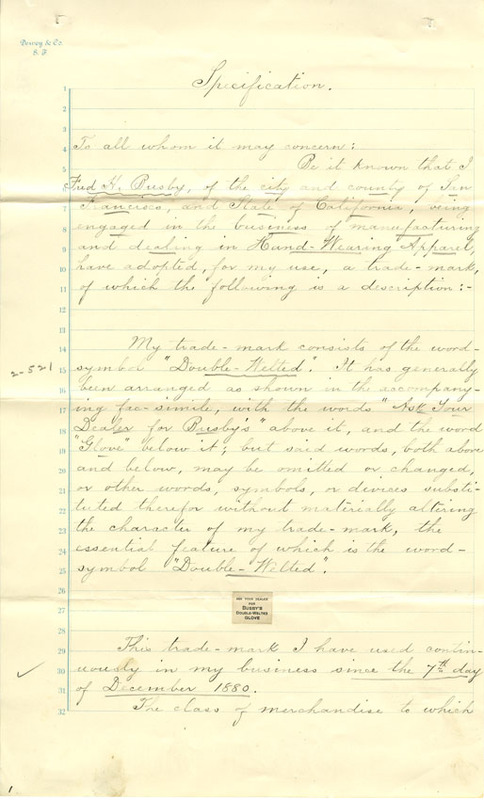 Dewey & Co.
S. F.
Specification.
1
2
3
4 To all whom it may concern:
5 Be it known that I
Fred H. Busby, of the city and county of San
7 Francisco, and State of California, being
8 engaged in the business of manufacturing
9 and dealing in Hand-Wearing Apparel,
10 have adopted, for my use, a trade-mark,
11 of which the following is a description:-
12
13
14 My trade-mark consists of the word-
2-521
15 symbol "Double-Welted". It has generally
16 been arranged as shown in the accompany-
17 ing fac-simile, with the words "Ask Your
18 Dealer for Busby's" above it, and the word
19 "Glove" below it; but said words, both above
20 and below, may be omitted or changed,
21 or other words, symbols, or divices substi-
22 tuted therefor without materially altering
23 the character of my trade-mark, the
24 essential feature of which is the word-
25 symbol "Double-Welted".
26
ASK YOUR DEALER
FOR
BUSBY'S
DOUBLE-WELTED
GLOVE
27
28
29 This trade-mark I have used contin-
30 uously in my business since the 7th day
31 of December 1880.
32 The class of merchandise to which
1